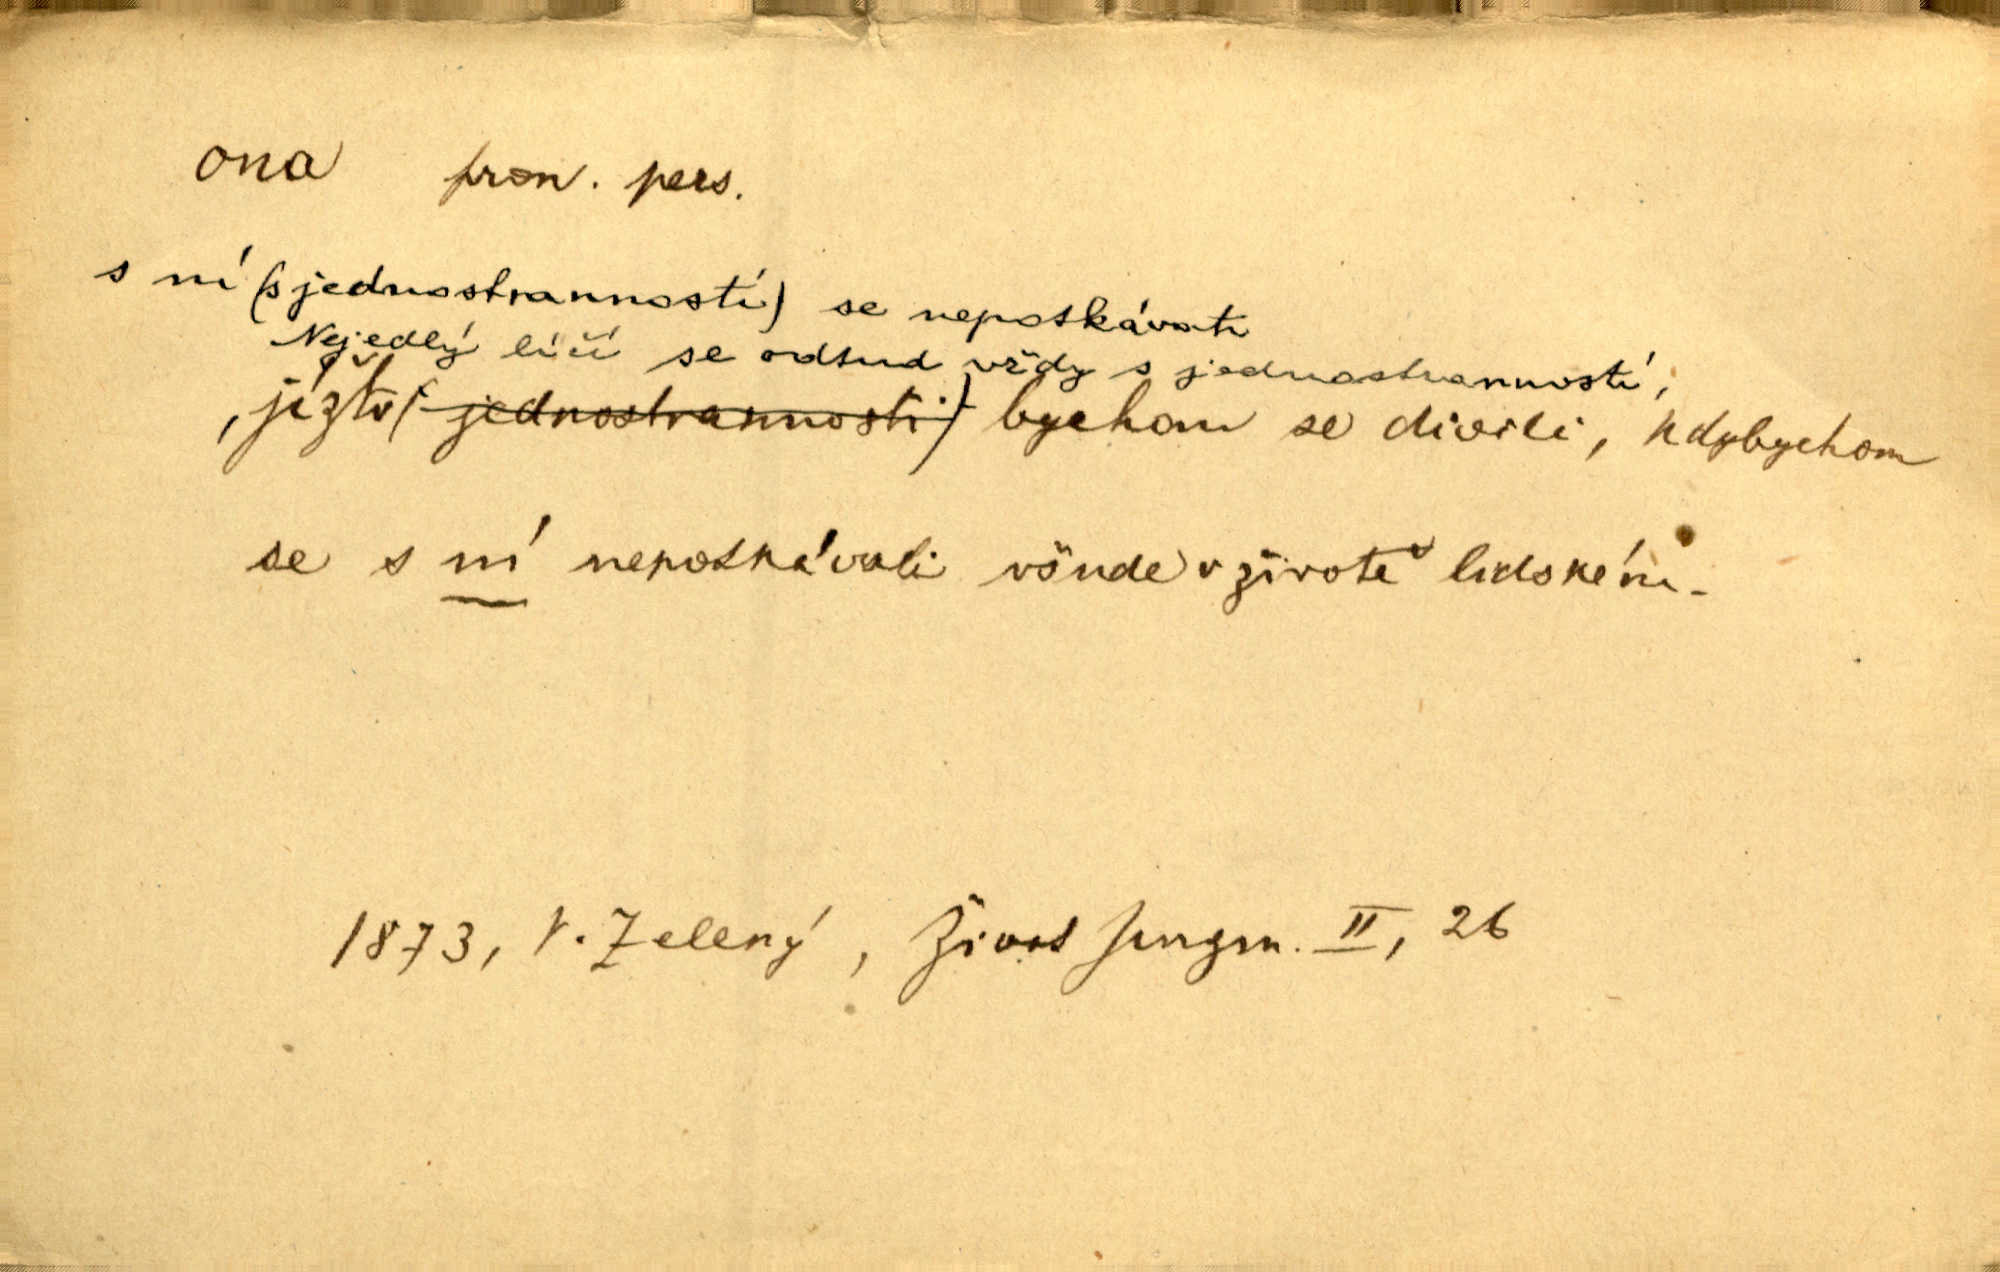 ona pron. pers.
s ní (s jednostranností) se neposkávati
Nejedlý líčí se odsud vždy s jednostranností,
, jížto (jednostrannosti) bychom se divili, kdybychom
se s ní nepotkávali všude v životě lidském.
1873, V. Zelený, Život Jungm. II, 26